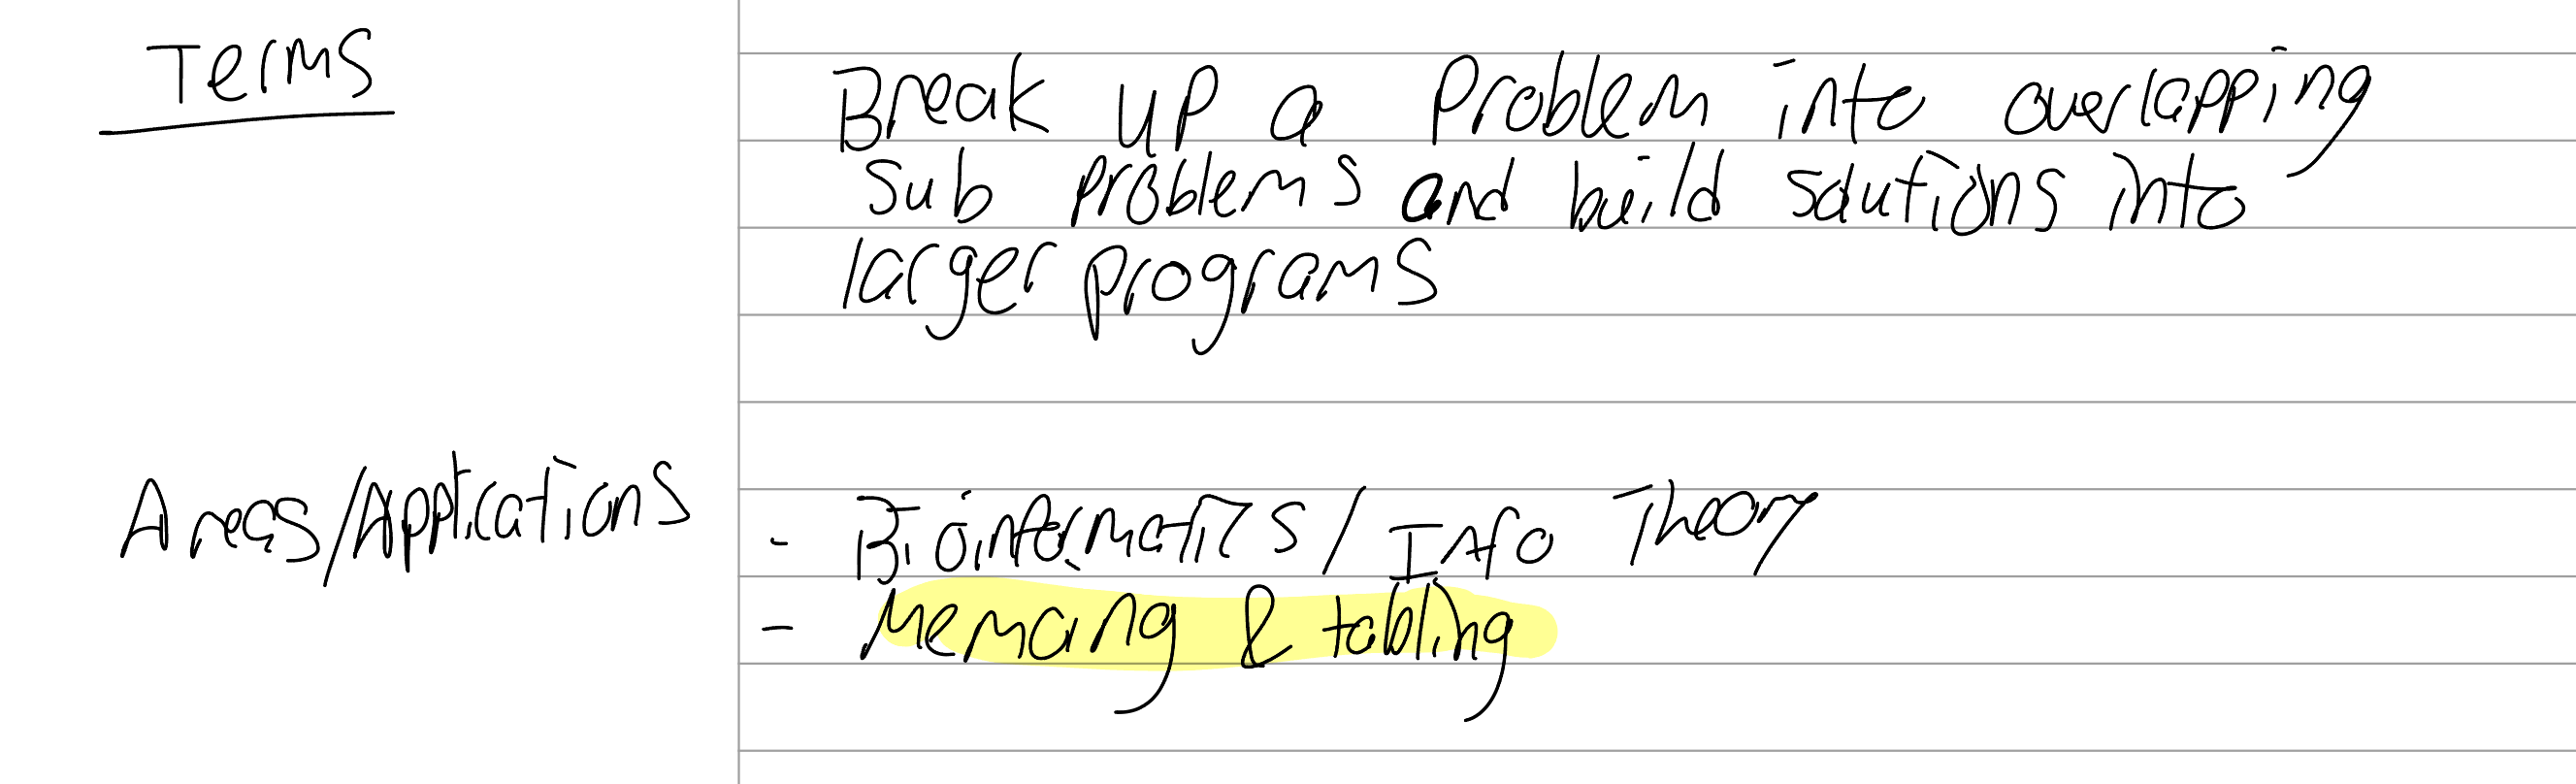 Terms
Break up a Problem into overlapping
Sub problems and build solutions into
larger programs
Areas/Applications
- Bioinformatics / Info Theory
- & tabling